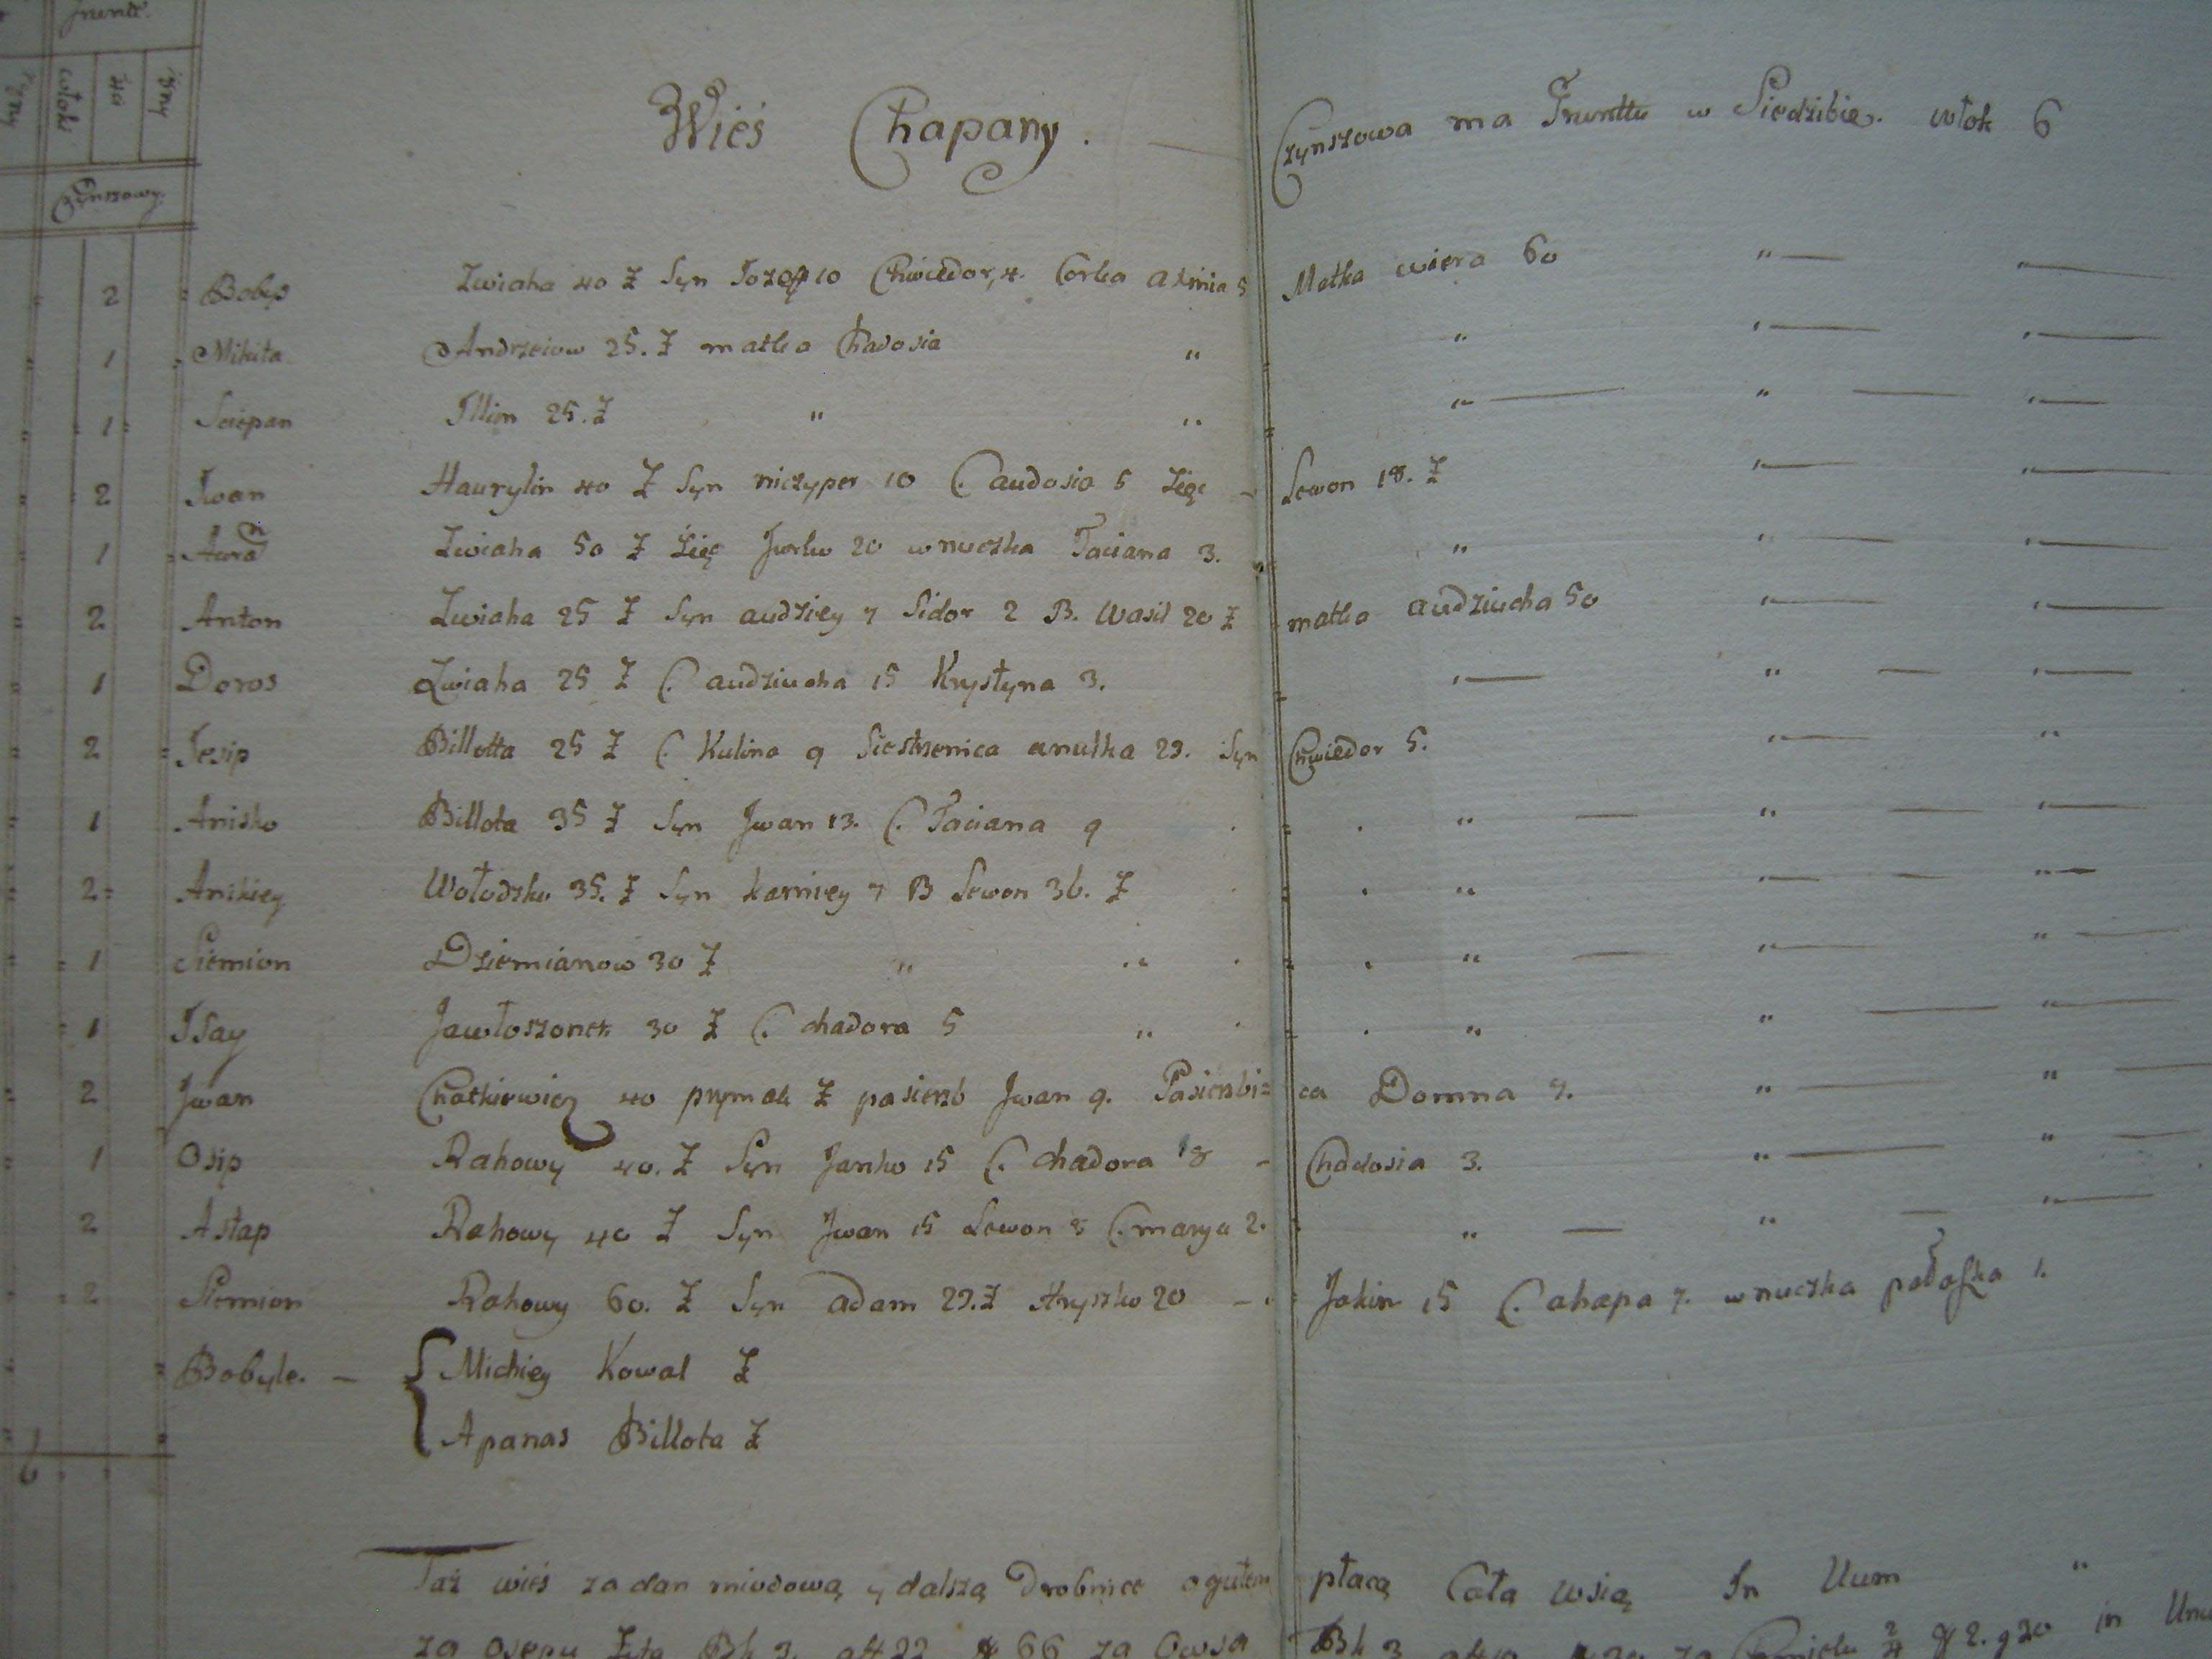 Grunta
włoki
Czynszowy.
Wieś Chapany. Czynszowa ma Grunttu w Siedzibie. włok 6
2 Zwiaha 40 Ż Syn Jozef 10 Chwiedor 4. Corka Axinia 5 Matka wiera 60
1 Mikita Andrzeiow 25. Ż matka Chadosia
1 Sciepan Illin 25. Ż
2 Jwan Haurylin 40 Ż Syn niczyper 10 C. audosia 5 Zięc - Lewon 18. Ż
1 Zwiaha 50 Ż Zięc Jurko 20 wnuczka Taciana 3.
2 Anton Zwiaha 25 Ż Syn audziey 7 Sidor 2 B. Wasil 20 Ż matka audziucha 50
1 Doros Zwiaha 25 Ż C. audziucha 15 Krystyna 3.
2 Jesip Billotta 25 Ż C. Kulina 9 Siestrzenica anulka 29. Syn Chwiedor 5.
1 Anisko Billota 35 Ż Syn Jwan 13. C. Taciana 9
2 Wołodzko 35. Ż Syn karniey 7 B Lewon 36. Ż
1 Siemion Dziemianow 30 Ż
1 Isay Jawłoszonek 30 Ż C. chadora 5
2 Jwan Chatkiewicz 40 prymak Ż pasierzb Jwan 9. Pasierzbi= ca Domna 7.
1 Osip Rahowy 40. Ż Syn Janko 15 C. chadora 18 - Chodosia 3.
2 Astap Rahowy 40 Ż Syn Jwan 15 Lewon 8 C. marya 2.
2 Siemion Rahowy 60. Ż Syn adam 29. Ż Hryszko 20 - Jakim 15 C. ahapa 7. wnuczka 1.
Bobyle. - { Michiey Kowal Ż
Apanas Billota Ż
6
Taż wieś za dan miodową y dalszą Drobnice ogułem płacą Cała wsią In Uum
za Osepu Żyta 3. 22 66 za Owsa 3 za Chmielu 2. g 20 in